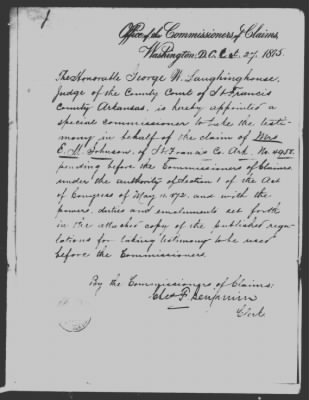 Office of the Commissioners of Claims,
Washington, D.C. Oct. 27, 1875.
The Honorable George W. Laughinghouse,
Judge of the County Court of St Francis
County Arkansas, is hereby appointed a
special commissioner to take the testi-
mony in behalf of the claim of Mrs
E. M. Johnson, of St Francis Co. Ark. No. 4958.
pending before the Commissioners of Claims
under the authority of Section 1 of the Act
of Congress of May 11. 1872. and with the
powers, duties and emoluments set forth
in the attached copy of the published regu-
lations for taking testimony to be used
before the Commissioners.
By the Commissioners of Claims:
Chas F. Benjamin
Clerk.